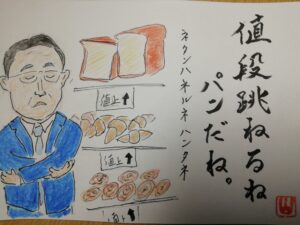 値段跳ねるね
パンだね。
ネタンハネルネ ハンタネ
値上↑
値上↑
値上↑